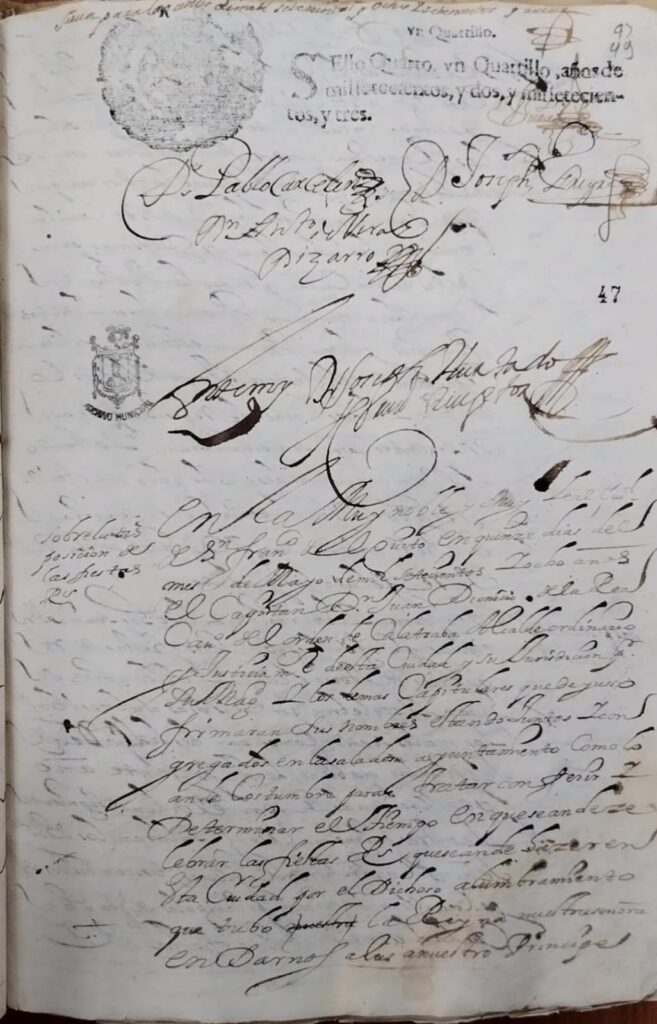 Sirva para los años de mill setecientos y ocho y setecientos y nueve
Vn Quartillo.
49
SEllo Quarto, vn Quartillo, años de
mil setecientos, y dos, y mil setecien-
tos, y tres.
Dn Pablo Dn Joseph
Dn Anto Mera
Pizarro
47
Antemy Dn Joseph Hurtado
ARCHIVO MUNICIPAL
En la Muy noble y muy Leal Ciud
de Sn franco del Quito en quinze dias del
mes de Mayo de mil setecientos y ocho años
el Capitan Dn Juan Dionicio de la Rea
Cauo del orden de Calatraba Alcalde ordinario
y Justicia mr desta Ciudad y su Jurisdicion pr
su Magd y los demas Capitulares que de yuso
firmaran sus nombres estando Juntos y con
gregados en la sala de ayuntamiento como lo
an de costumbre para tratar conferir y
Determinar el tiempo en que se an de ze
lebrar las fiestas Rs que se an de hazer en
esta Ciudad por el Dichoso alumbramiento
que tubo la Reyna nuestra señora
en Darnos a lus a nuestro Principe
sobre la dis
posicion de
las fiestas
Rs